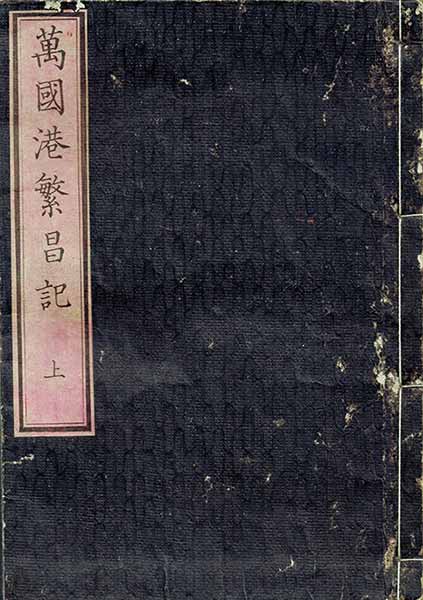 萬國港繁昌記
上